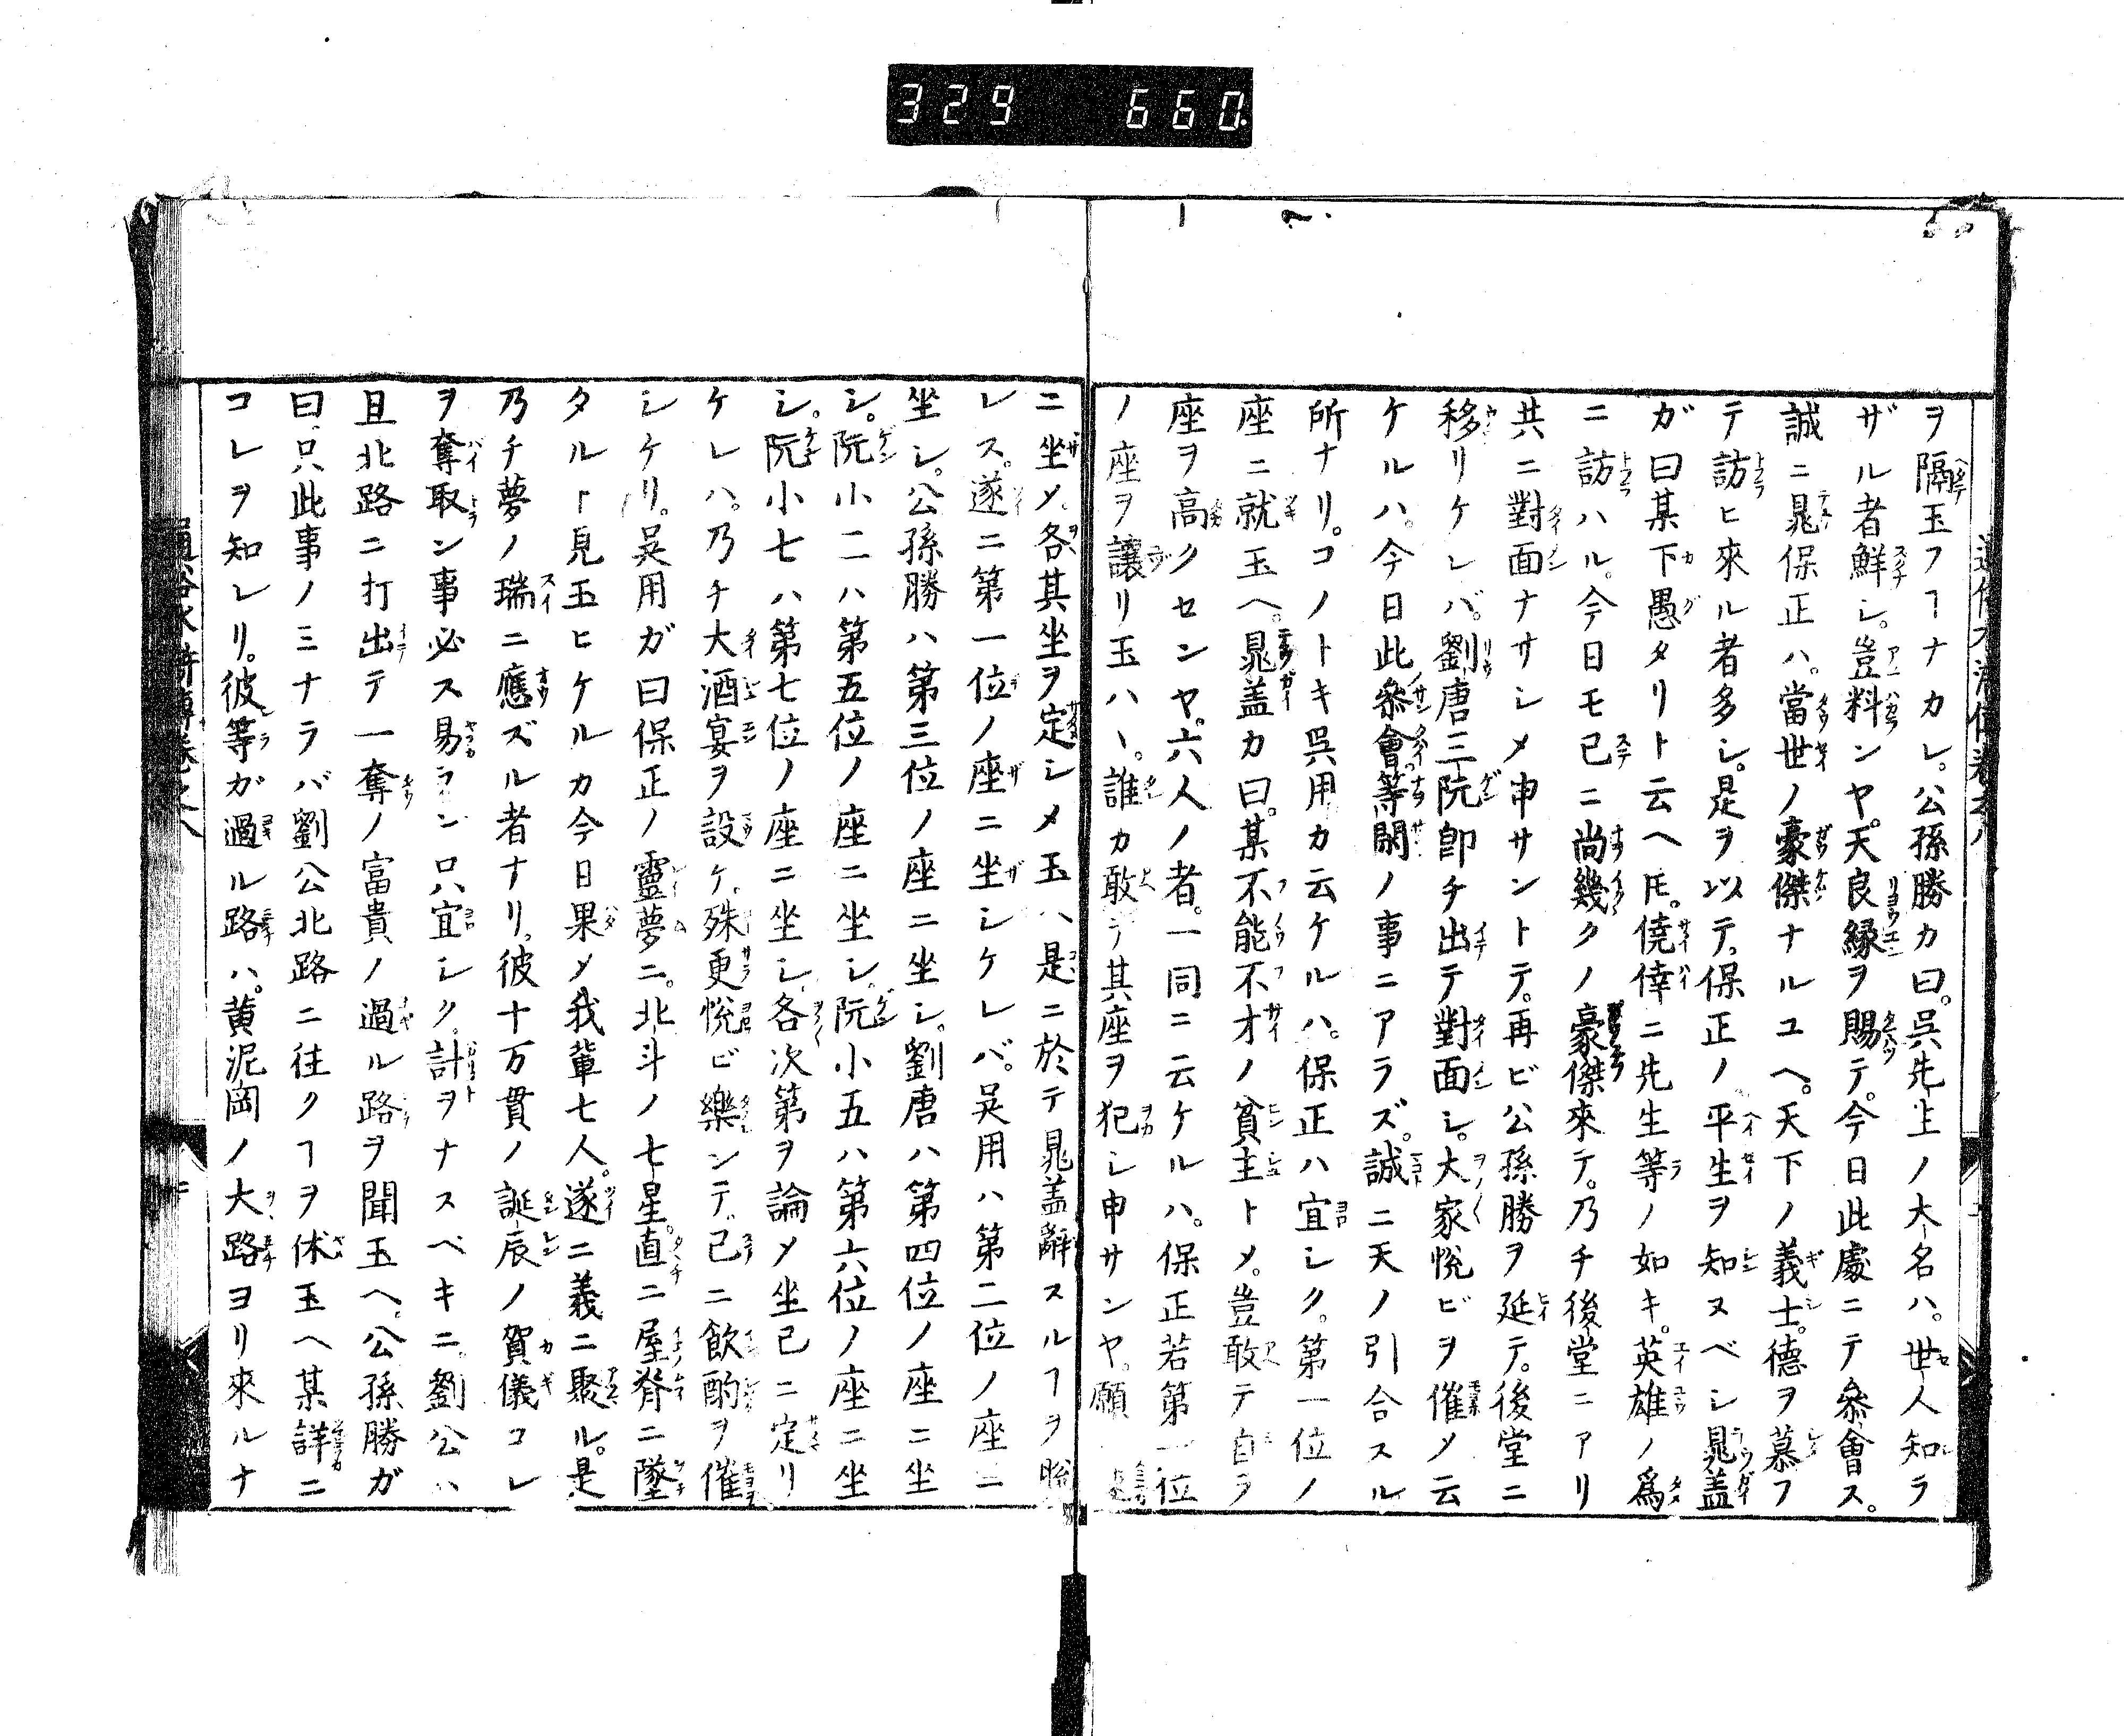 329 660
ヲ隔玉フヿナカレ。公孫勝カ曰。呉先生ノ大名ハ。世人知ラ
ザル者鮮シ。豈料ンヤ。天良縁ヲ賜テ。今日此處ニテ參會ス。
誠ニ晁保正ハ。當世ノ豪傑ナルユヘ。天下ノ義士。德ヲ慕フ
テ訪ヒ來ル者多シ。是ヲ以テ。保正ノ平生ヲ知ヌベシ晁盖
ガ曰某下愚タリト云ヘ𪜈。僥倖ニ先生等ノ如キ。英雄ノ爲
ニ訪ハル。今日モ已ニ尚幾クノ豪傑來テ。乃チ後堂ニアリ
共ニ對面ナサシメ申サントテ。再ビ公孫勝ヲ延テ。後堂ニ
移リケレバ。劉唐三阮卽チ出テ對面シ。大家悅ビヲ催メ云
ケルハ。今日此參會。等閑ノ事ニアラズ。誠ニ天ノ引合スル
所ナリ。コノトキ呉用カ云ケルハ。保正ハ宜シク。第一位ノ
座ニ就玉ヘ。晁盖カ曰。某不能不才ノ貧主トメ。豈敢テ自ラ
座ヲ高クセンヤ。六人ノ者。一同ニ云ケルハ。保正若第一位
ノ座ヲ讓リ玉ハヽ。誰カ敢テ其座ヲ犯シ申サンヤ。願
ニ坐メ。各其坐ヲ定シメ玉ハ是ニ於テ晁盖辭スルヿヲ
レス。遂ニ第一位ノ座ニ坐シケレバ。吴用ハ第二位ノ座ニ
坐シ。公孫勝ハ第三位ノ座ニ坐シ。劉唐ハ第四位ノ座ニ坐
シ。阮小二ハ第五位ノ座ニ坐シ。阮小五ハ第六位ノ座ニ坐
シ。阮小七ハ第七位ノ座ニ坐シ。各次第ヲ論メ坐已ニ定リ
ケレハ。乃チ大酒宴ヲ設ケ。殊更悅ビ樂ンデ。已ニ飮酌ヲ催
シケリ。吴用ガ曰保正ノ靈夢ニ。北斗ノ七星。直ニ屋脊ニ墜
タルト見玉ヒケルカ今日果メ我輩七人。遂ニ義ニ聚ル。是
乃チ夢ノ瑞ニ應ズル者ナリ。彼十万貫ノ誕辰ノ賀儀コレ
ヲ奪取ン事必ス易ラン只宜シク。計ヲナスベキニ。劉公ハ
且北路ニ打出テ一奪ノ富貴ノ過ル路ヲ聞玉ヘ。公孫勝ガ
曰。只此事ノミナラバ劉公北路ニ往クヿヲ休玉ヘ某詳ニ
コレヲ知レリ。彼等ガ過ル路ハ。黄泥岡ノ大路ヨリ來ルナ